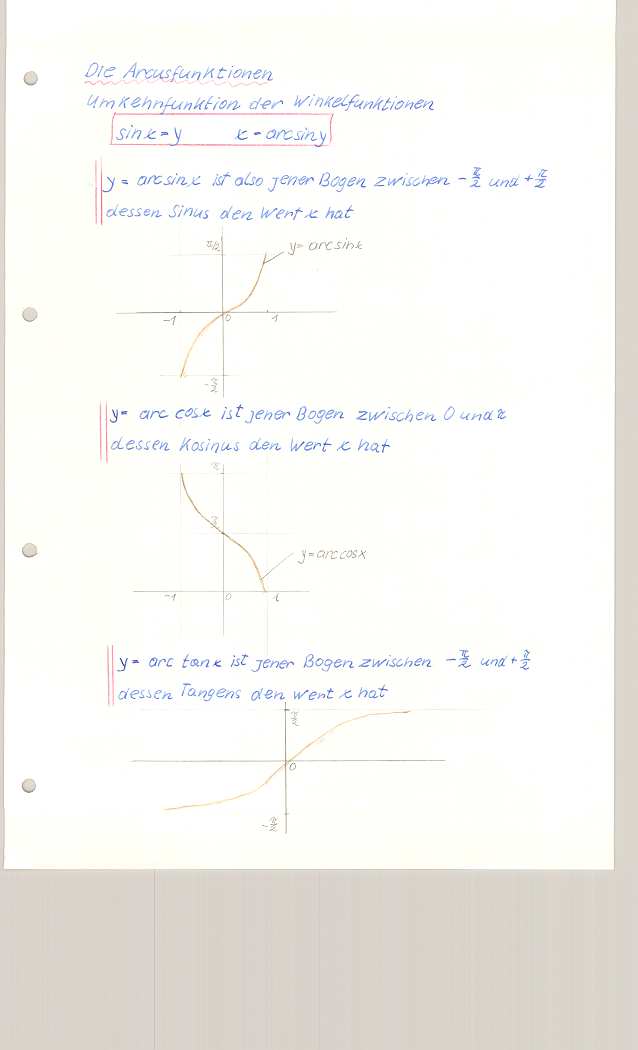 Die Arcusfunktionen
Umkehrfunktion der Winkelfunktionen
sin x = y x = arcsin y
y = arcsin x ist also jener Bogen zwischen -π/2 und +π/2
dessen Sinus den Wert x hat
π/2
y = arc sin x
-1 0 1
-π/2
y = arc cos x ist jener Bogen zwischen 0 und π
dessen Kosinus den Wert x hat
π
π/2
y = arc cos x
-1 0 1
y = arc tan x ist jener Bogen zwischen -π/2 und +π/2
dessen Tangens den Wert x hat
π/2
0
-π/2